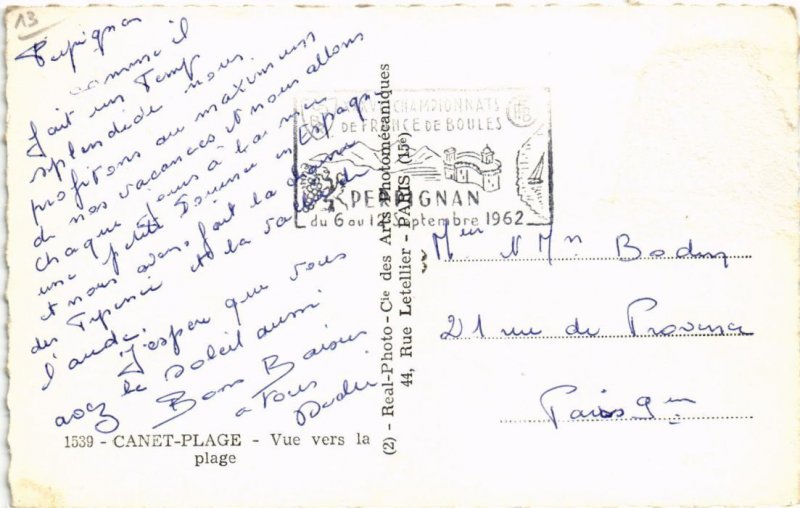 13
Perpignan
comme il
fait un Temp
splendide nous
profitons au maximum
de nos vacances et nous allons
chaque jours à la mer
une petite Tournée en Espagne
et nous avons fait la chaine
des Pyrenée et la vallée de
l'aude.
J'espere que vous
avez le soleil aussi
Bons Baisers
a Tous
1539 - CANET-PLAGE - Vue vers la
plage
(2) - Real-Photo - Cie des Arts Photomécaniques
44, Rue Letellier - PARIS (15e)
CHAMPIONNATS
DE FRANCE DE BOULES
PERPIGNAN
du 6 au 12 Septembre 1962
Mr
21 rue de Provence
Paris 9